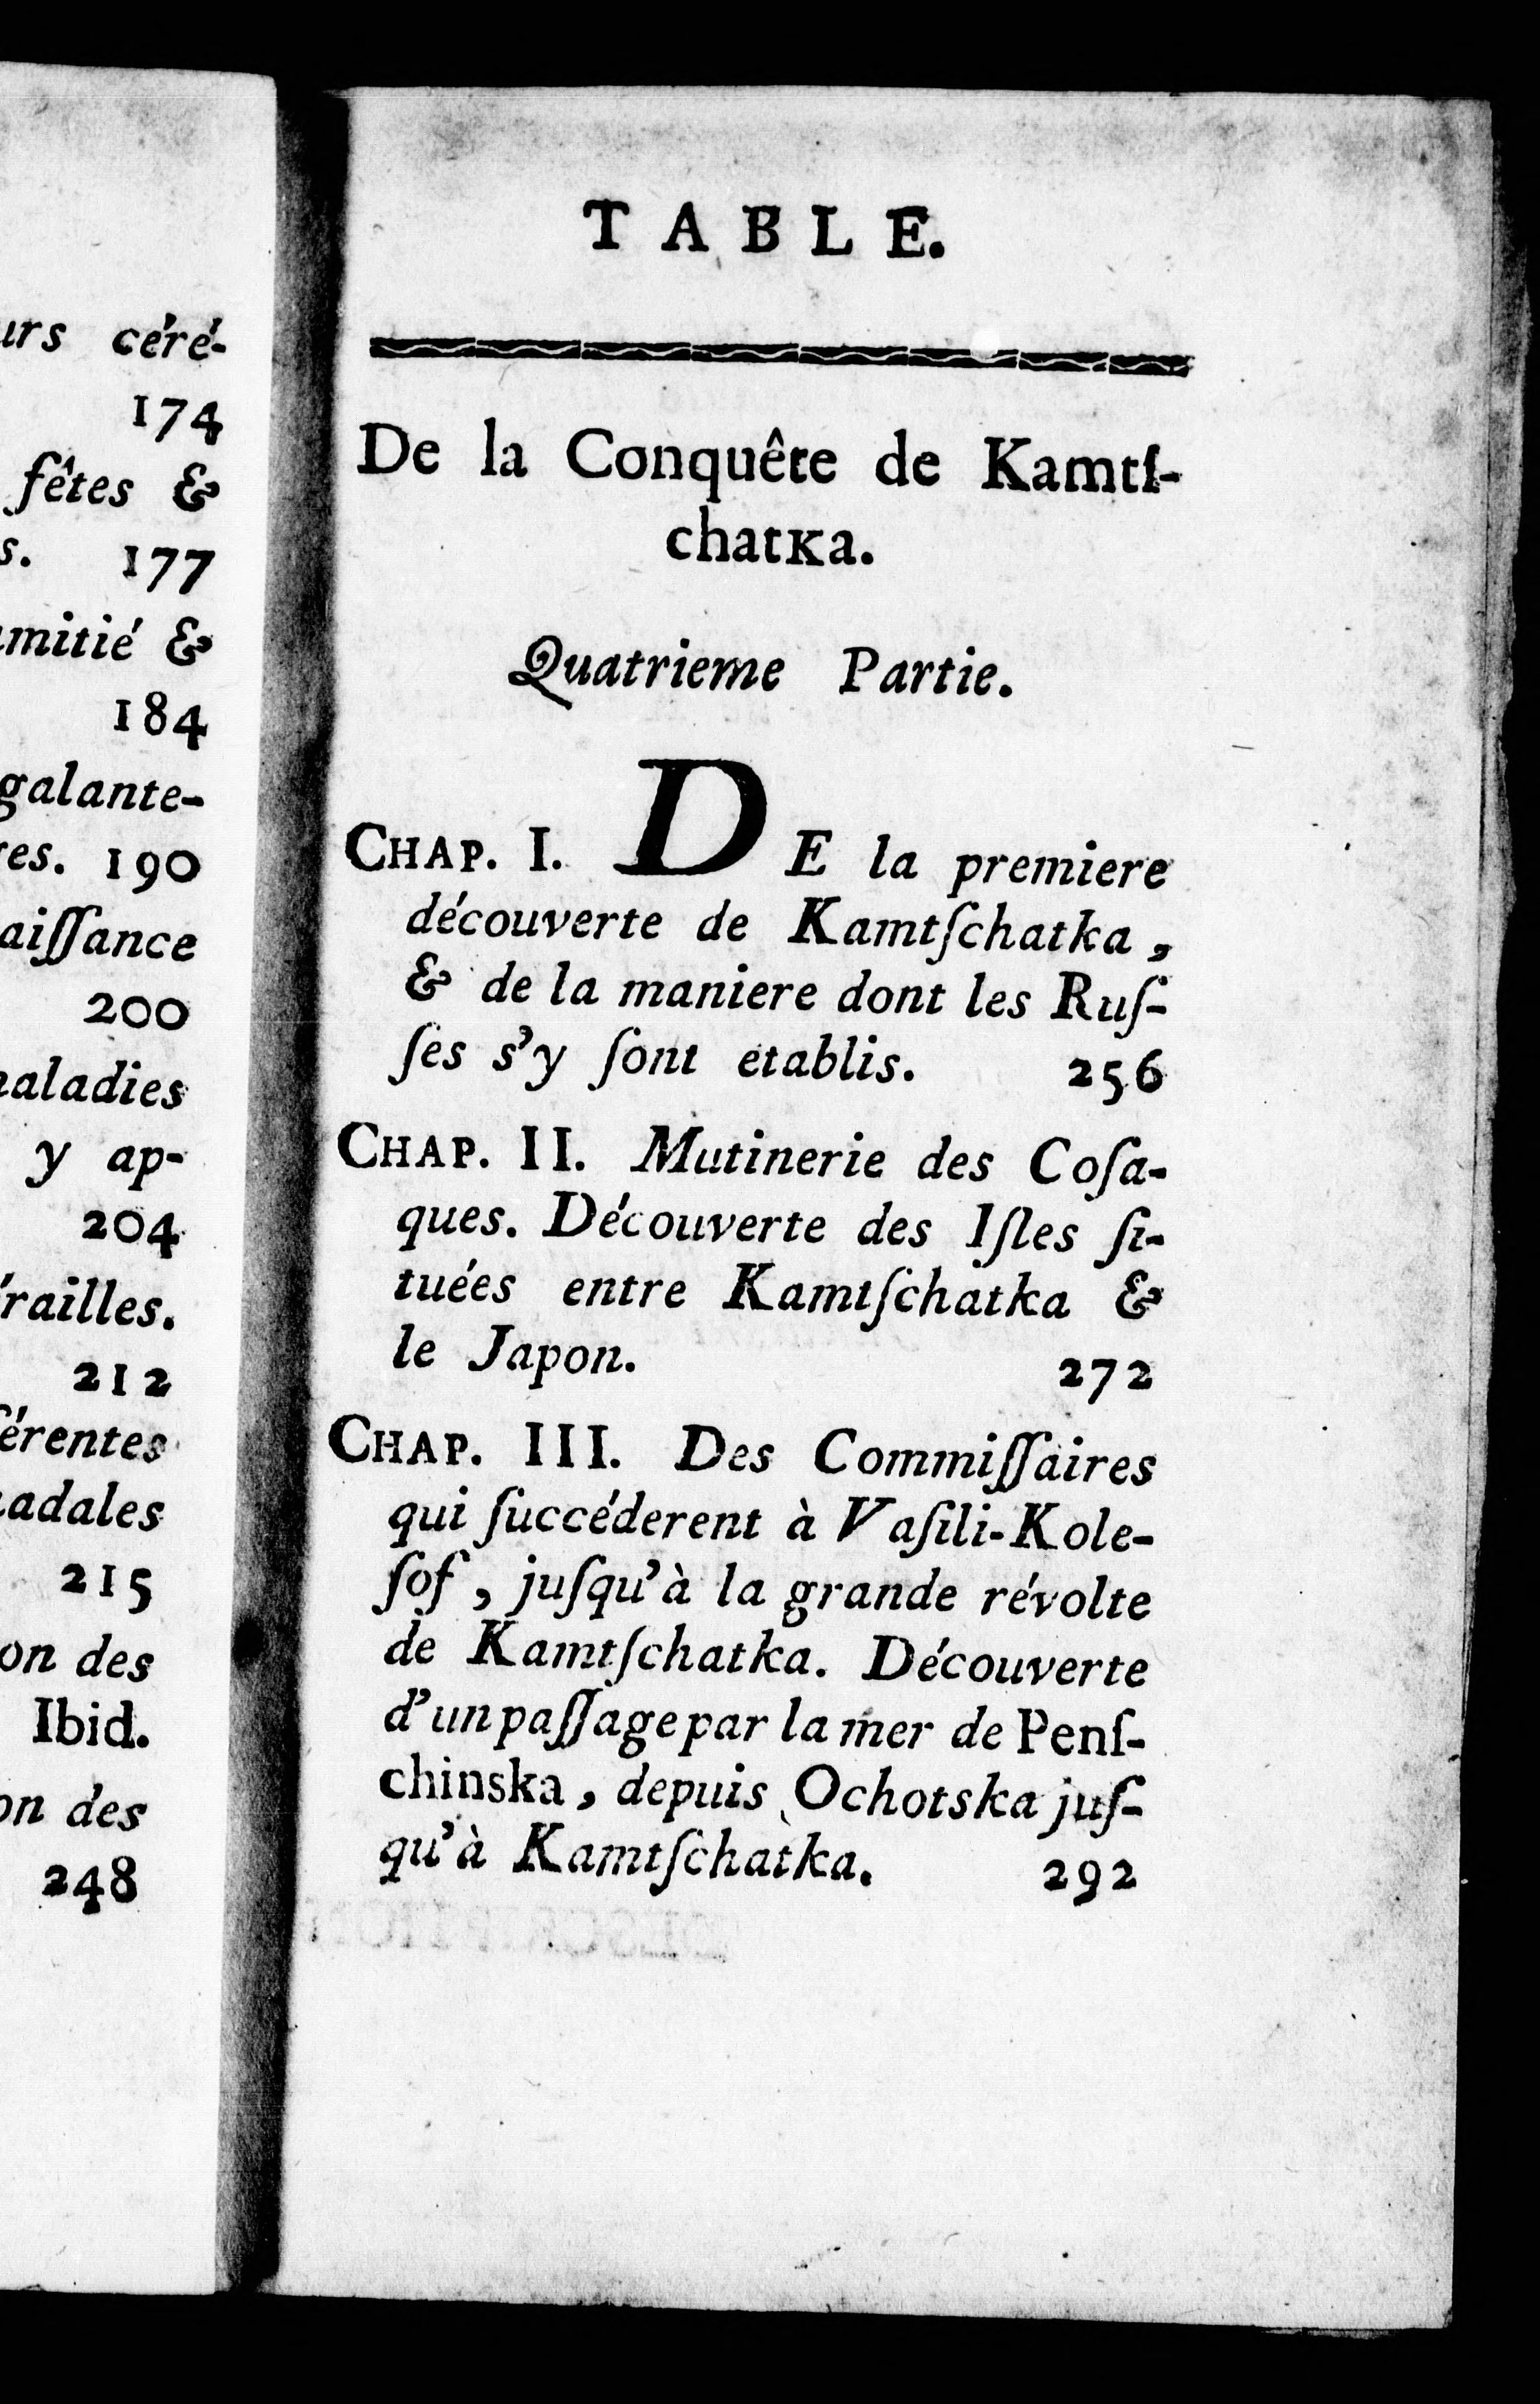 urs céré-
174
fêtes &
s. 177
mitié &
184
galante-
res. 190
aiſſance
200
aladies
y ap-
204
railles.
212
érentes
adales
215
on des
Ibid.
on des
248
TABLE.
De la Conquête de Kamtſ-
chatka.
Quatrieme Partie.
CHAP. I. DE la premiere
découverte de Kamtſchatka,
& de la maniere dont les Ruſ-
ſes s'y ſont établis. 256
CHAP. II. Mutinerie des Coſa-
ques. Découverte des Iſles ſi-
tuées entre Kamtſchatka &
le Japon. 272
CHAP. III. Des Commiſſaires
qui ſuccéderent à Vaſili-Kole-
ſof, juſqu'à la grande révolte
de Kamtſchatka. Découverte
d'un paſſage par la mer de Penſ-
chinska, depuis Ochotska juſ-
qu'à Kamtſchatka. 292